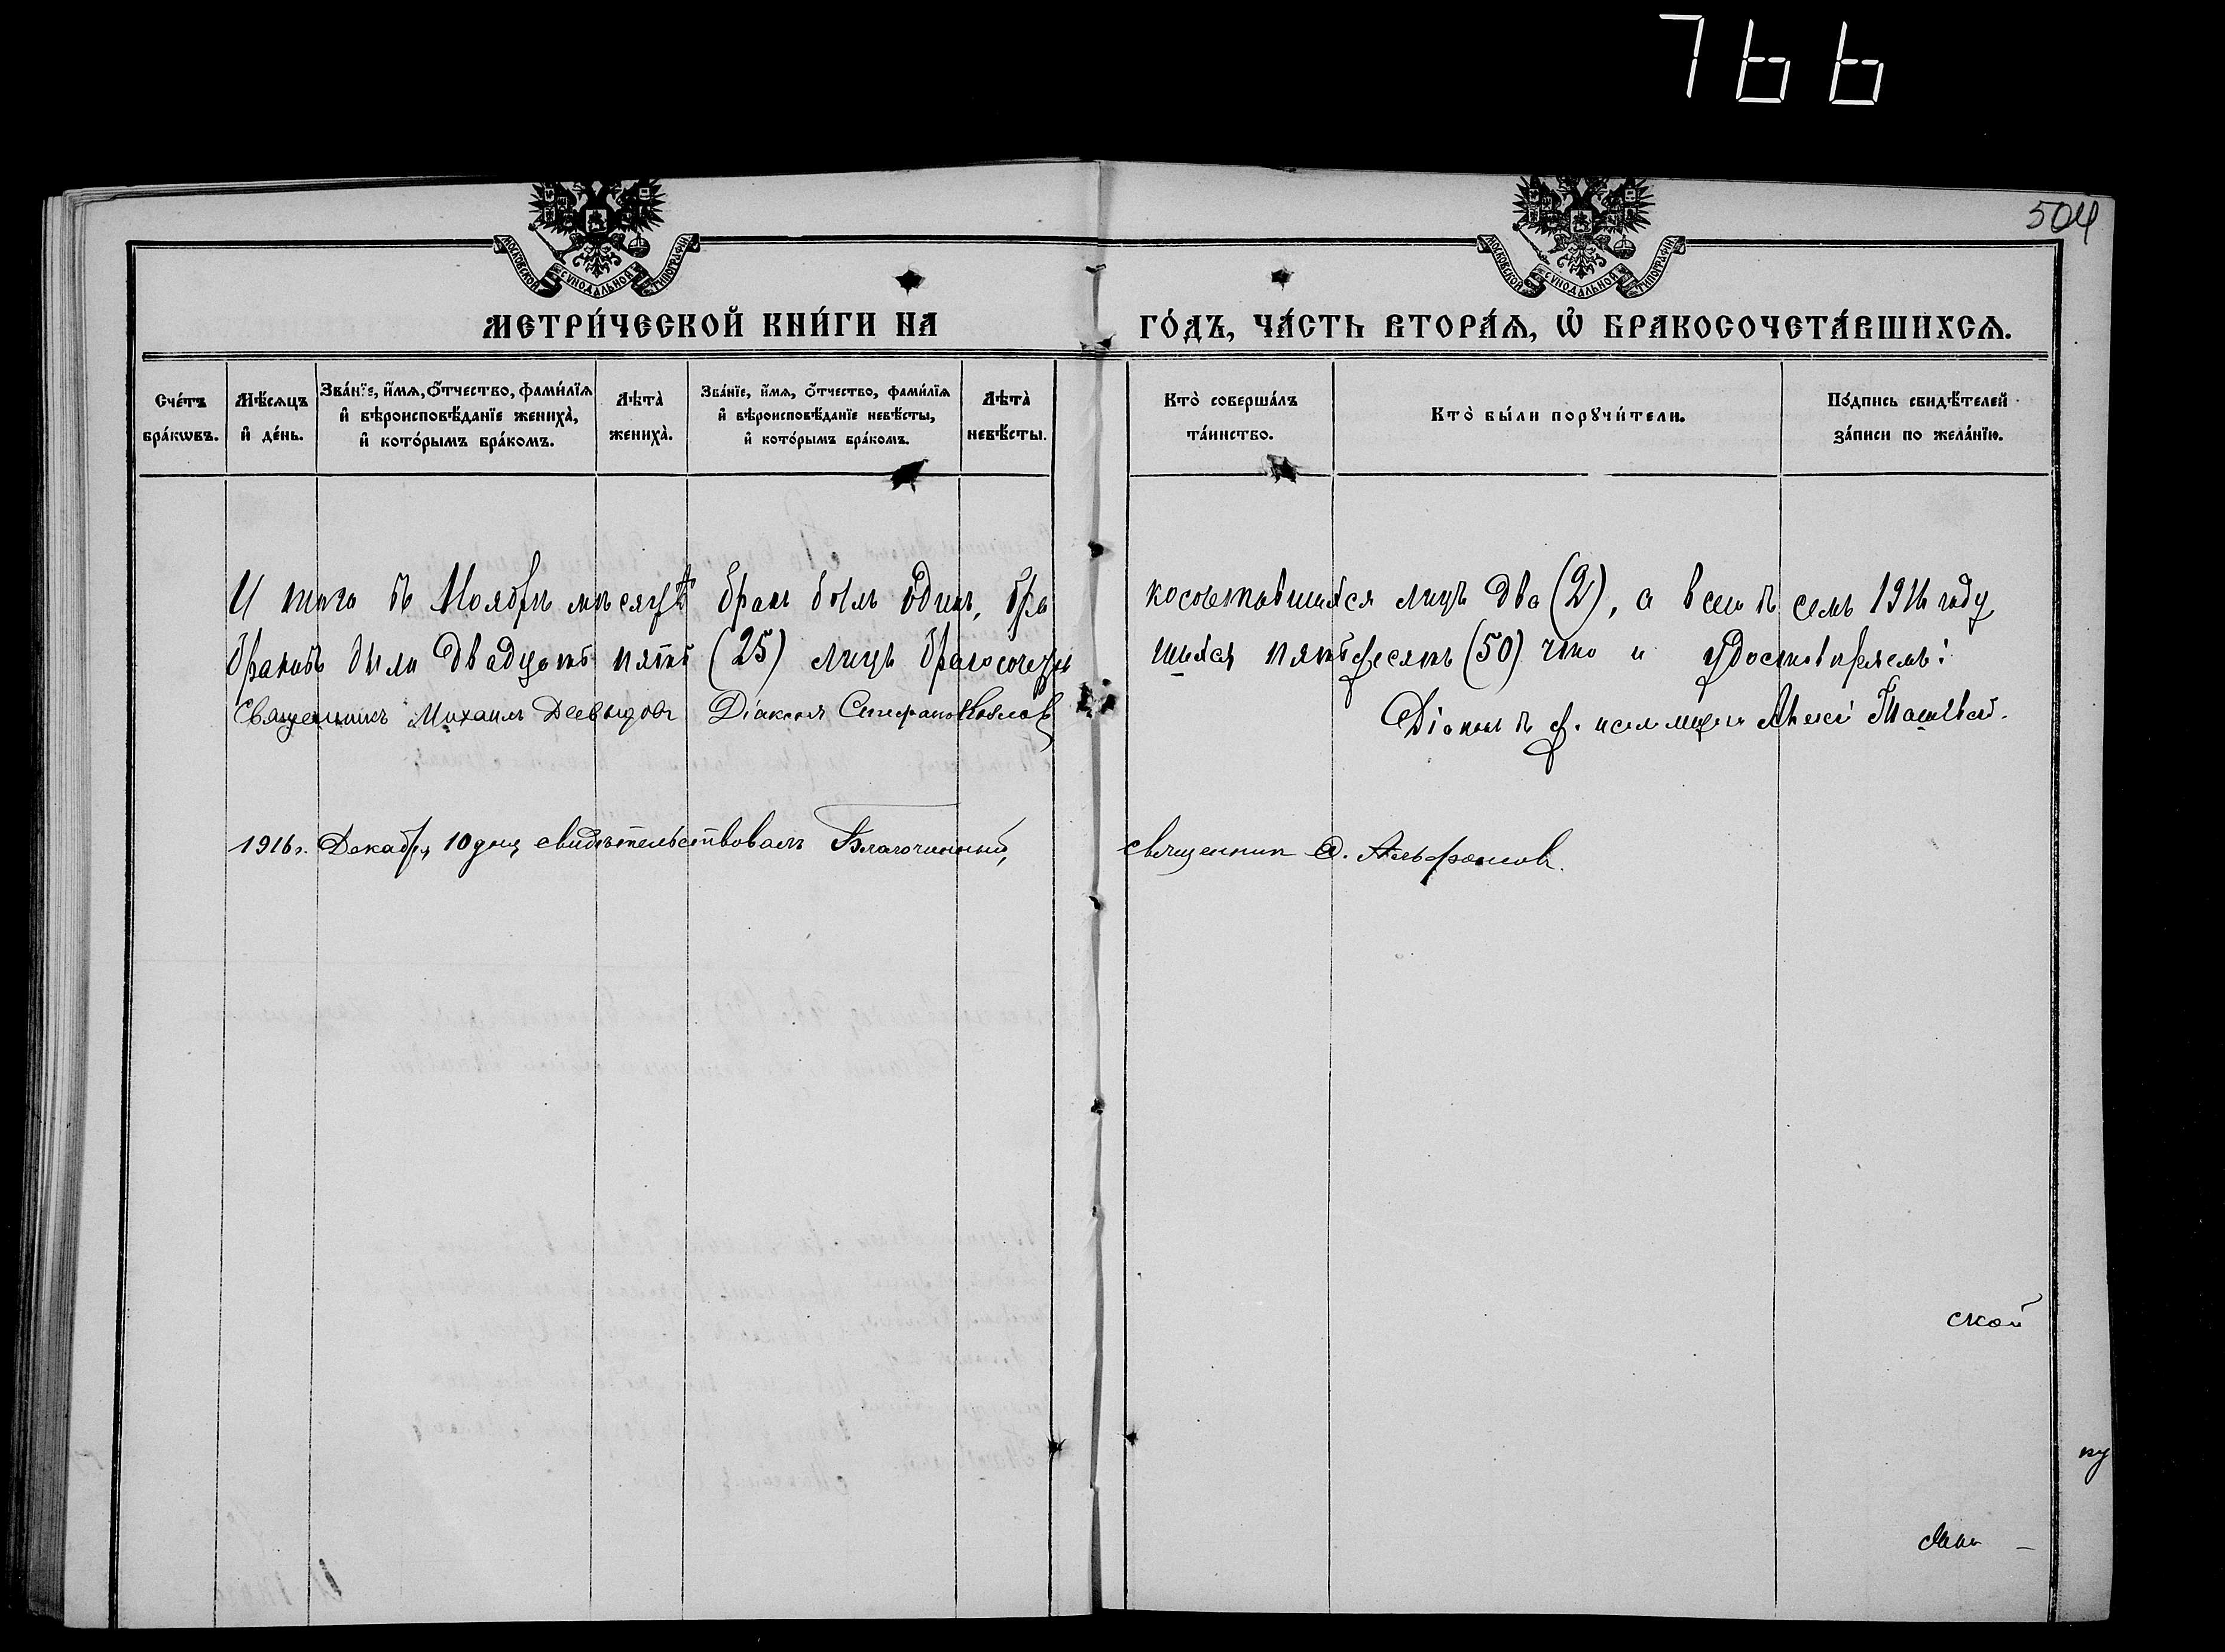 766
504
МОСКОВСКОЙ СѴНОДАЛЬНОЙ ТИПОГРАФІИ
МОСКОВСКОЙ СѴНОДАЛЬНОЙ ТИПОГРАФІИ
МЕТРИ́ЧЕСКОЙ КНИ́ГИ НА ГО́ДЪ, ЧА́СТЬ ВТОРА́Ѧ, Ѽ БРАКОСОЧЕТА́ВШИХСѦ.
Сче́тъ бра́кѡвъ.
Мѣ́сѧцъ и҆ де́нь.
Зва́нїе, и҆́мѧ, ѻ҆́тчество, фами́лїѧ
и҆ вѣроисповѣ́данїе женихà,
и҆ кото́рымъ бра́комъ.
Лѣтà женихà.
Зва́нїе, и҆́мѧ, ѻ҆́тчество, фами́лїѧ
и҆ вѣроисповѣ́данїе невѣ́сты,
и҆ кото́рымъ бра́комъ.
Лѣтà невѣ́сты.
Кто̀ соверша́лъ та́инство.
Кто̀ бы́ли порꙋчи́тели.
По́дпись свидѣ́телей за́писи по жела́нїю.
И того въ Ноябрѣ мѣсяцѣ бракъ былъ одинъ, бра косочетавшихся лицъ два (2), а всего въ семъ 1916 году
браковъ были двадцать пять (25) лицъ бракосочета шихся пятьдесятъ (50) что и удостовѣряемъ:
Священникъ Михаилъ Давыдовъ Діаконъ Стефанъ Козловъ Діаконъ в д. псаломщика Алексій
1916 г. Декабря 10 дня свидѣтельствовалъ Благочинный, священникъ
ской
ну